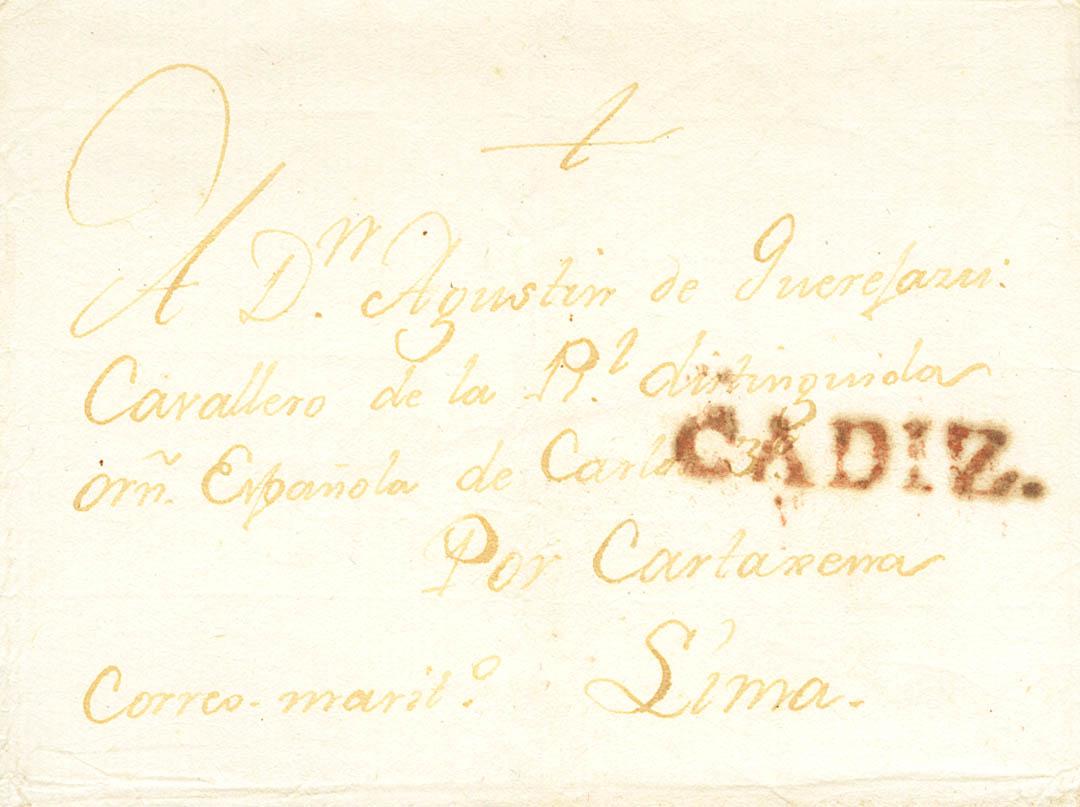 A D.n Agustin de Querejazu.
Cavallero de la Rl. distinguida
orñ. Española de Carlos 3º
CADIZ.
Por Cartaxena
Lima.
Correo. marit.º